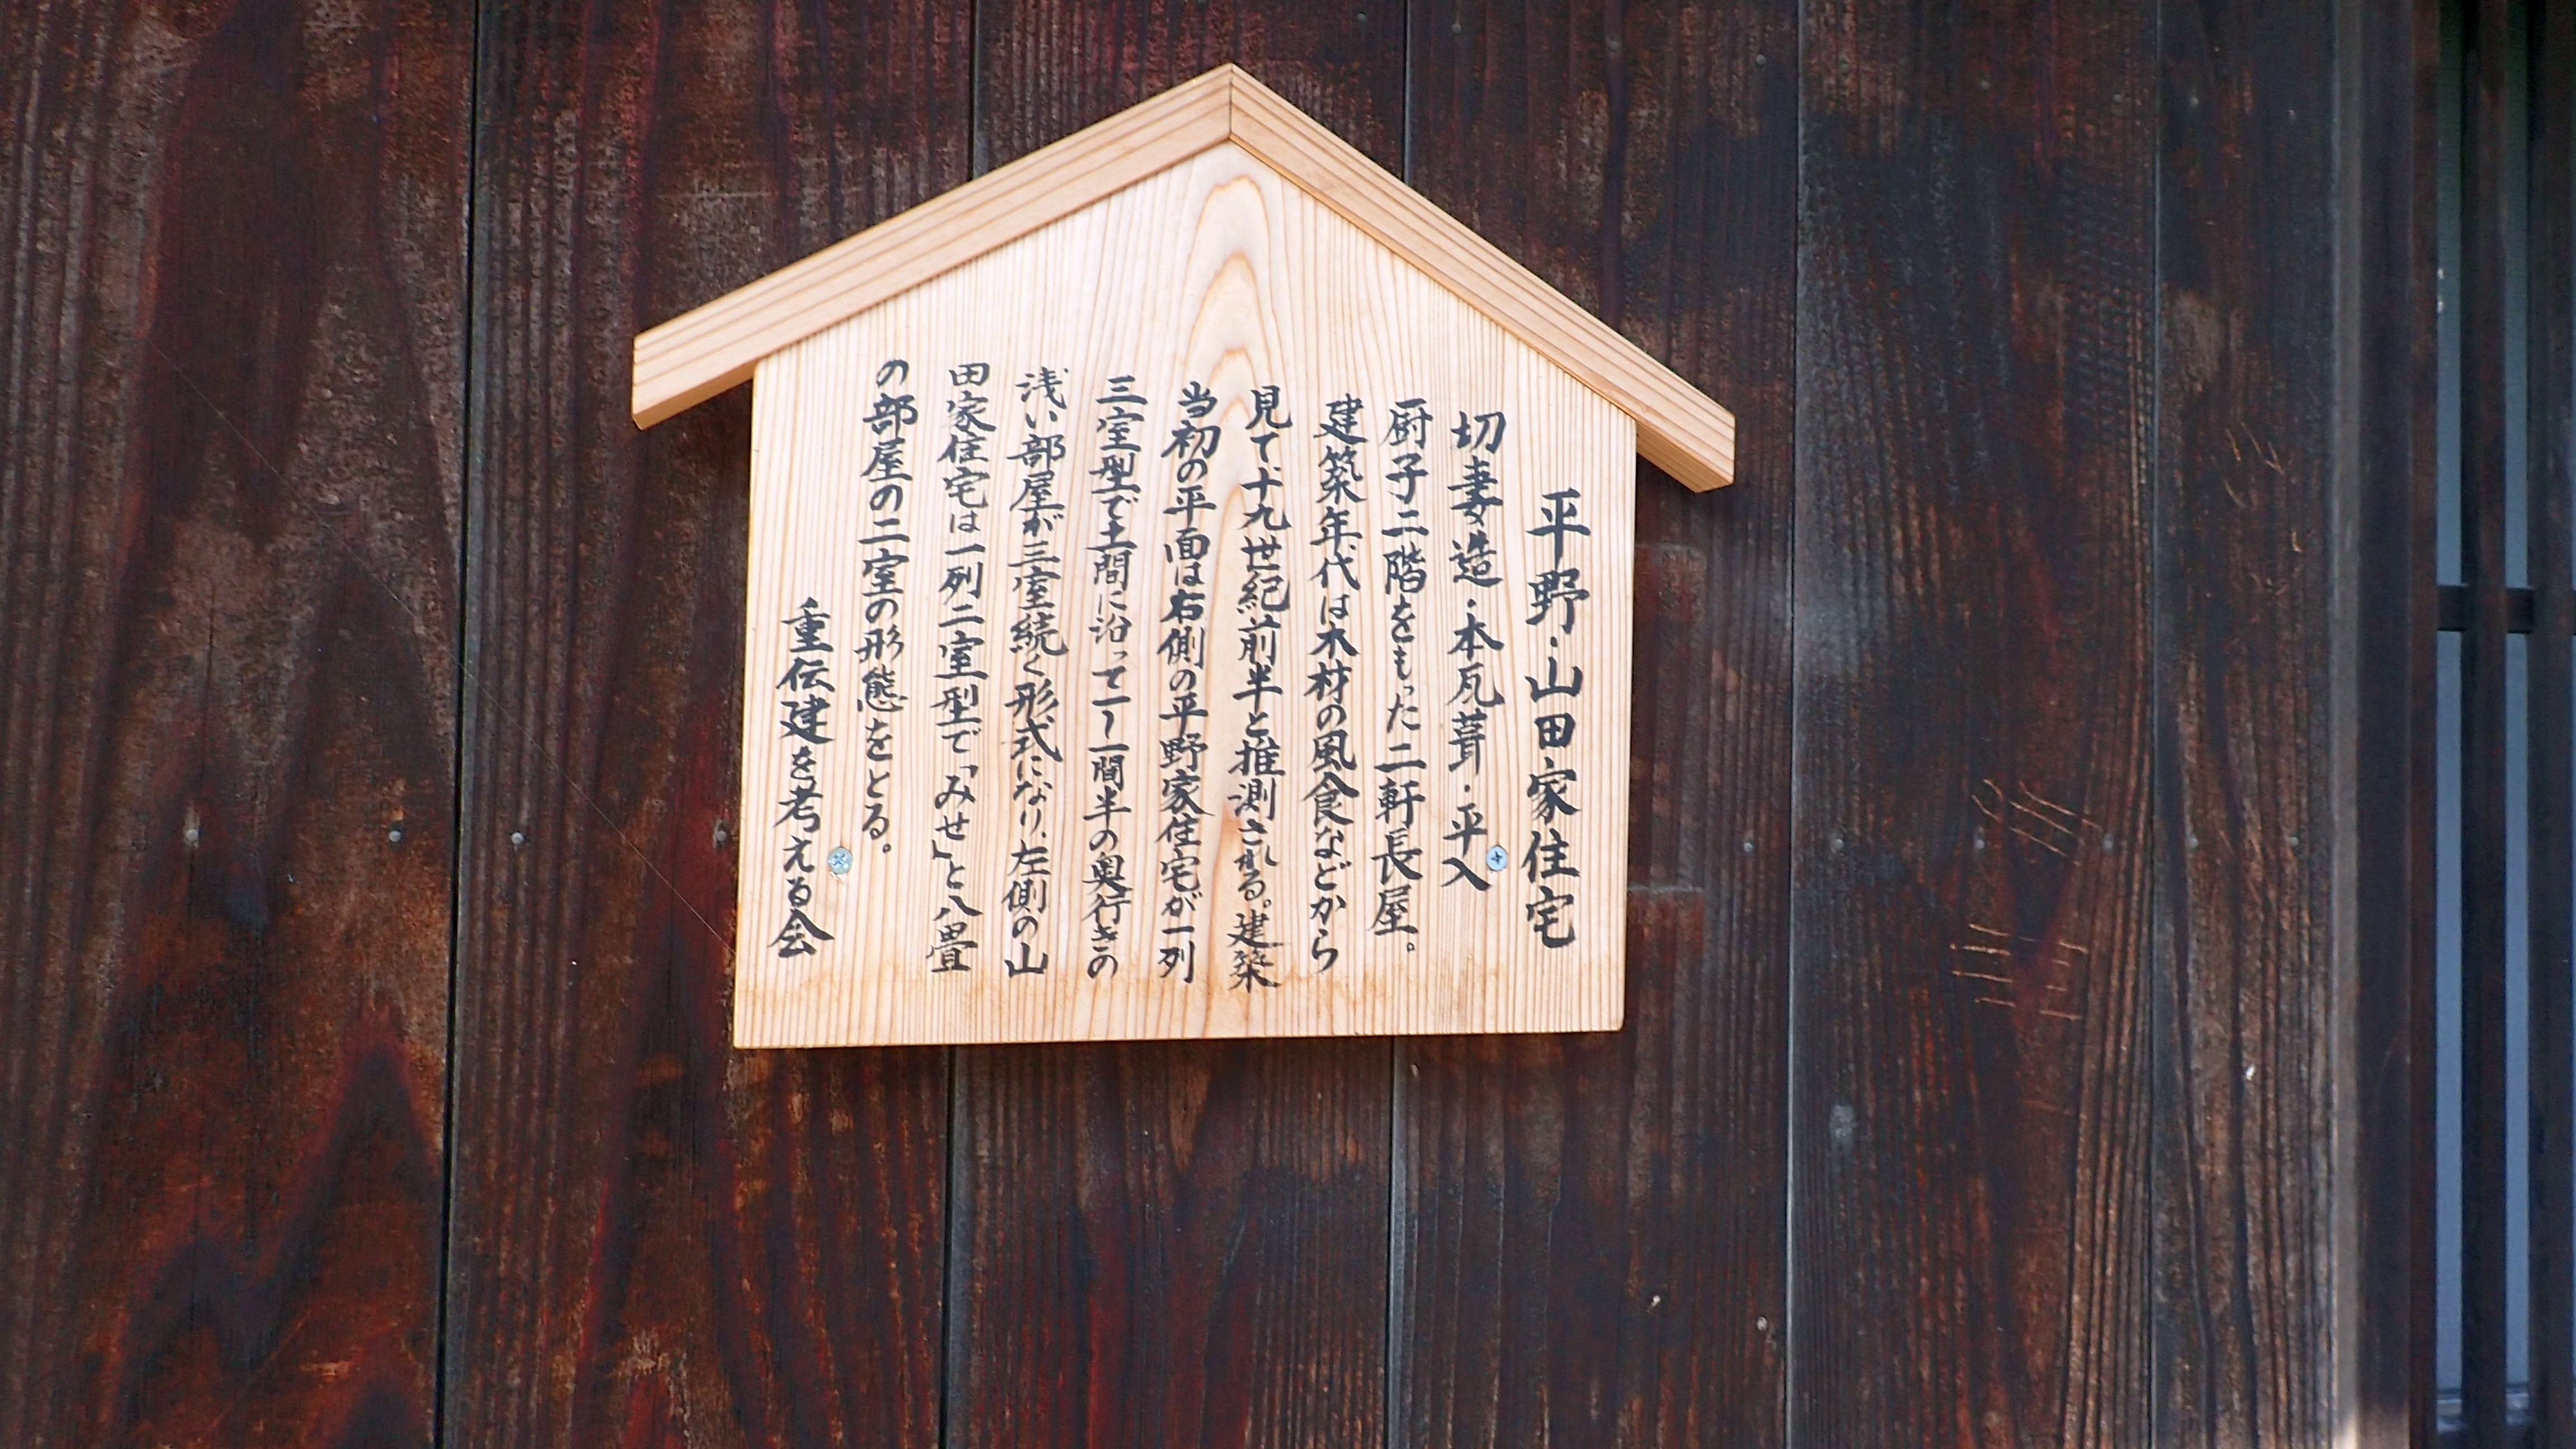 平野・山田家住宅
切妻造・本瓦葺・平入
厨子二階をもった二軒長屋。
建築年代は木材の風食などから
見て十九世紀前半と推測される。建築
当初の平面は右側の平野家住宅が一列
三室型で土間に沿って一〜一間半の奥行きの
浅い部屋が三室続く形式になり、左側の山
田家住宅は一列二室型で「みせ」と八畳
の部屋の二室の形態をとる。
重伝建を考える会